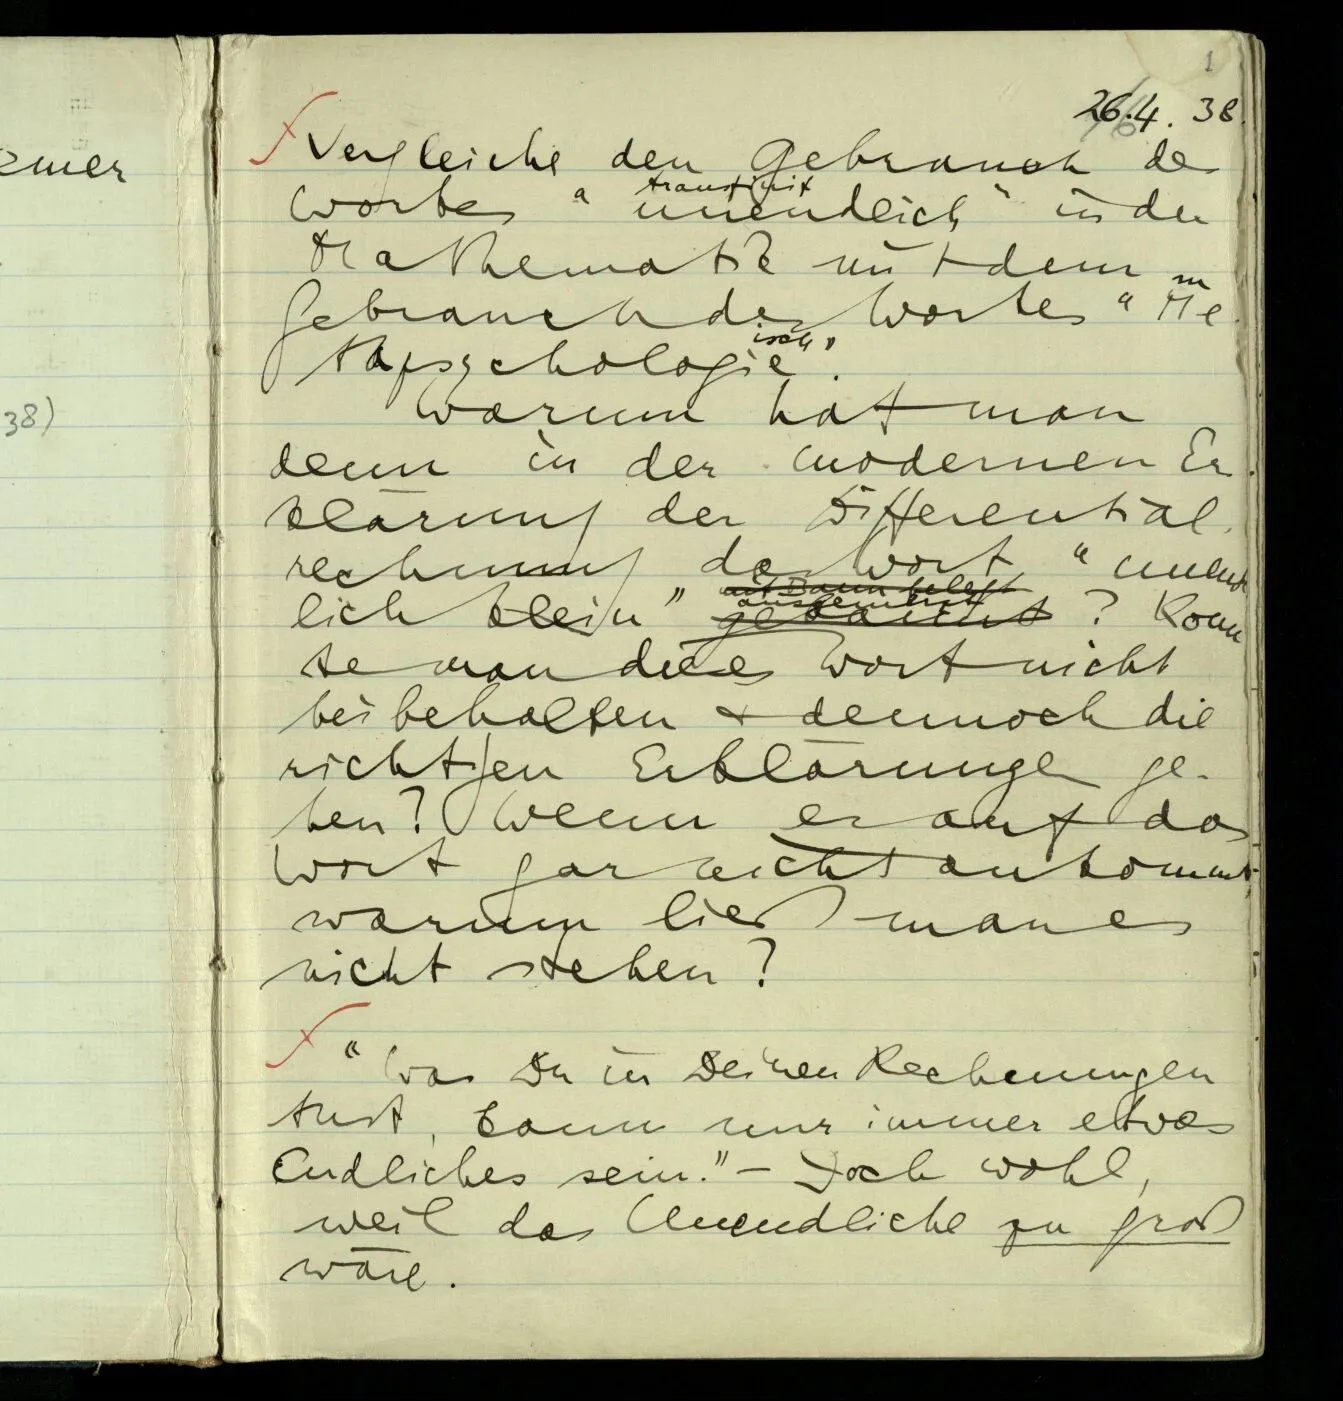 emer
38)
1
26.4.38.
Vergleiche den Gebrauch des
transfinit
Wortes "unendlich" in der
Mathematik mit dem
m
Gebrauch des Wortes "Me
isch"
tapsychologie".
Warum hat man
denn in der modernen Er
klärung der Differential
rechnung das Wort "unend
mit Bann belegt
ausgemerzt
lich klein" gebannt? Konn
te man dieses Wort nicht
beibehalten & dennoch die
richtigen Erklärungen ge-
ben? Wenn es auf das
Wort gar nicht ankommt,
warum ließ man es
nicht stehen?
"Was Du in Deinen Rechnungen
tust, kann nur immer etwas
Endliches sein." – Doch wohl,
weil das Unendliche zu groß
wäre.